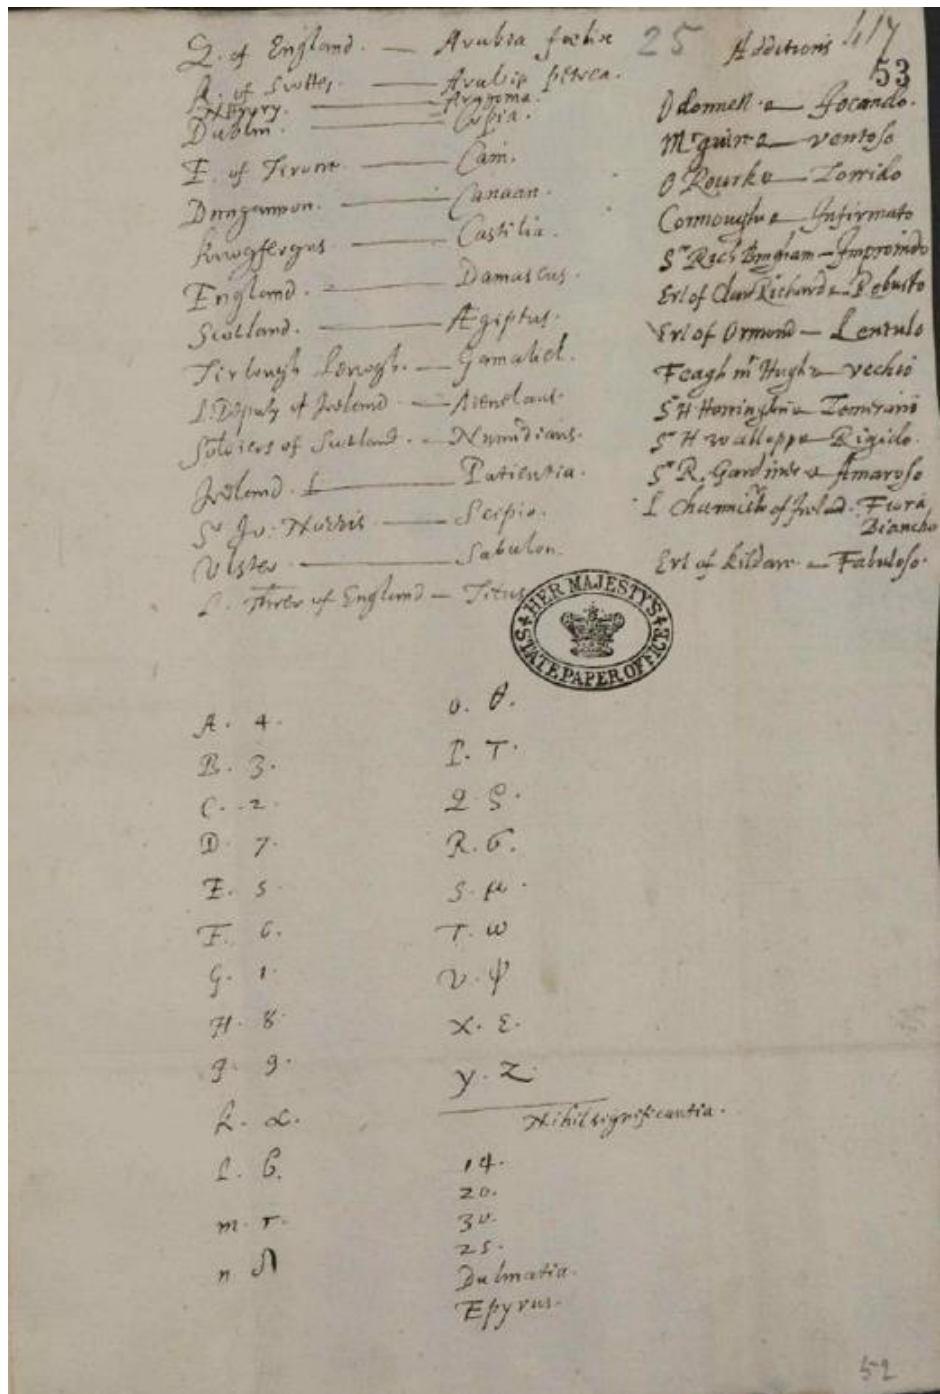 Q. of England. — Arabia fœlix
K. of Scottes. — Arabia petrea.
Dublin. — Copia.
E. of Tirone. — Cain.
Dungannon. — Canaan.
Knogfergus — Castilia.
England. — Damascus.
Scotland. — Ægiptus.
Tirlough Lenogh. — Gamaliel.
L. Deputy of Ireland — Menelaus.
Soldiers of Scotland. — Numidians.
Ireland. — Patientia.
Sr Jo: Norris — Scipio.
Ulster — Sabulon.
L. Threr of England — Titus
25 Additions 417
53
Odonnell — Jocando.
Mcguire — ventoso
O Rourke — Torrido
Cormough — Infirmato
Sr Rich Bingham — Improindo
Erl of Clan Richard — Robusto
Erl of Ormond — Lentulo
Feagh mc Hugh — vechio
Sr H Harrington — Temerario
Sr H wallopp — Rigido.
Sr R. Gardiner — Amaroso
L Chauncelr of Ireland. Fiora
Biancho
Erl of kildare — Fabuloso.
HER MAJESTY'S
STATE PAPER OFFICE
A. 4.
B. 3.
C. 2.
D. 7.
E. 5.
F. 6.
G. 1.
H. 8.
J. 9.
K. α.
L. β.
m. τ.
n
o. θ.
P. T.
Q
R. σ.
S. μ.
T. ω
V. ψ
X. ε.
y. Z.
Nihil significantia.
14.
20.
30.
25.
Dalmatia.
Epyrus.
52